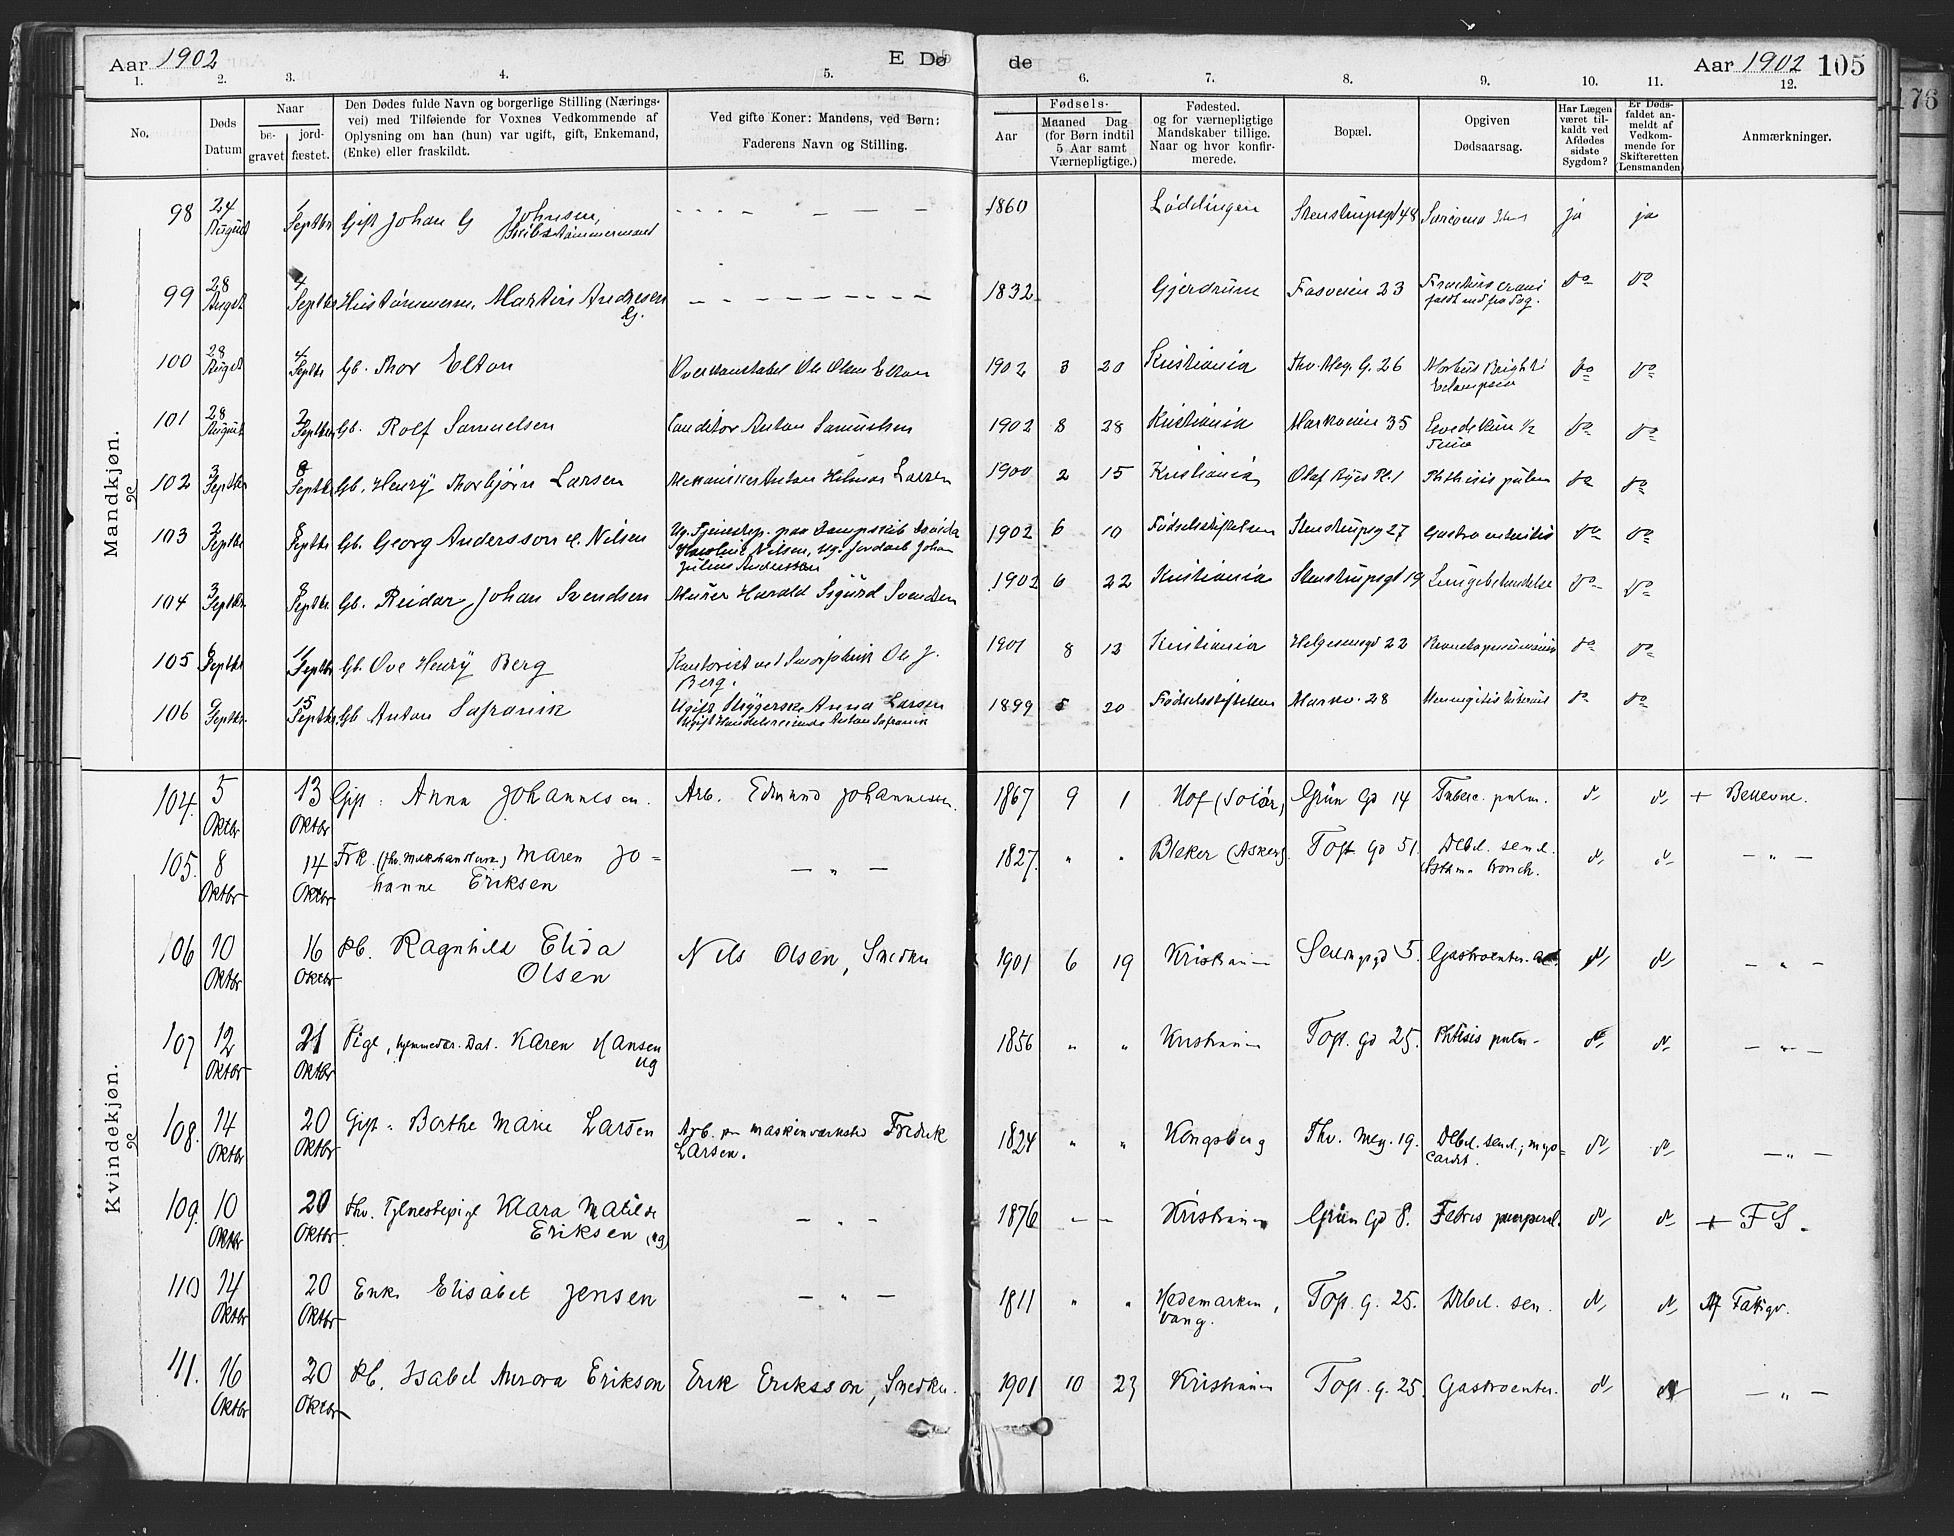 Aar 1902
E Dø
de
Aar 1902 105
76
1. 2. 3. 4. 5. 6. 7. 8. 9. 10. 11. 12.
No.
Døds Datum
Naar
be-
gravet
jord-
fæstet.
Den Dødes fulde Navn og borgerlige Stilling (Nærings-
vei) med Tilføiende for Voxnes Vedkommende af
Oplysning om han (hun) var ugift, gift, Enkemand,
(Enke) eller fraskildt.
Ved gifte Koner: Mandens, ved Børn:
Faderens Navn og Stilling.
Fødsels-
Aar
Maaned Dag
(for Børn indtil
5 Aar samt
Værnepligtige.)
Fødested.
og for værnepligtige
Mandskaber tillige.
Naar og hvor konfir-
merede.
Bopæl.
Opgiven
Dødsaarsag.
Har Lægen
været til-
kaldt ved
Afdødes
sidste
Sygdom?
Er Døds-
faldet an-
meldt af
Vedkom-
mende for
Skifteretten
(Lensmanden)
Anmærkninger.
Mandkjøn.
98 24 August Septbr Gift Johan G Johnsen, – – – 1860 Løddingen Stenstrupsgt 48 Sarcoma ja ja
99 28 August 4 Septbr Hustømmerm. Martin Andresen – – – 1832 Gjerdrum Fosveien 23 Fractura cranii do do
faldt ned fra Tag.
100 28 August 4 Septbr Gb. Thor Elton Overkonstabel Ole Olsen Elton 1902 3 20 Kristiania Thv. Mey. G. 26 Morbus Brightii do do
Eclampsia
101 28 August 2 Septbr Gb. Rolf Samuelsen Conditor Anton Samuelsen 1902 8 28 Kristiania Markveien 35 do do
102 3 Septbr 8 Septbr Gb. Henry Thorbjørn Larsen Mekaniker Anton Hilmar Larsen 1900 2 15 Kristiania Olaf Ryes Pl. 1 Phthisis pulm do do
103 2 Septbr 8 Septbr Gb. Georg Andersson el. Nilsen Ug. Tjenestep. paa Dampskib
Karoline Nilsen, Ug. Johan
Julius Andersson 1902 6 10 Fødselsstiftelsen Stenstrupsg 27 Gastroenteritis do do
104 3 Septbr 8 Septbr Gb. Reidar Johan Svendsen Murer Harald Sigurd Svendsen 1902 6 22 Kristiania Stenstrupsgt 19 Lungebetændelse do do
105 6 Septbr 11 Septbr Gb. Ove Henry Berg Kontorist ved Ole J.
Berg. 1901 8 13 Kristiania Helgesensgd 22 Bronchopneumonia do do
106 9 Septbr. 15 Septbr. Gb Anton Safranik Ugift Anna Larsen
Ugift Handelsreisende Anton Safranik 1899 5 20 Fødselsstiftelsen Markv. 28 Meningitis tuberc do do
Kvindekjøn.
104. 5 Oktbr 13 Oktbr Gift: Anna Johannesen. Arb. Edmund Johannessen. 1867 9 1 Hof (Solør) Grün Gd 14 Tuberc. pulm. do do + Bellevue.
105. 8 Oktbr 14 Oktbr Frk. Maren Jo=
hanne Eriksen – " – 1827. " " Bleker (Asker). Toft Gd 51. Debil. senil.
Asthm. bronch. do do – " –
106 10 Oktbr 16 Oktbr Pb. Ragnhild Elida
Olsen Nils Olsen, Snedker 1901 6 19 Kristiania Seildugsgd 5. Gastroenter. ac. do do – " –
107 12 Oktbr 21 Oktbr Pige, hjemmevær. Dat. Karen Hansen
ug 1856 " " Kristiania Toft. gd 25. Phtisis pulm. do do – " –
108. 14 Oktbr 20 Oktbr Gift. Berthe Marie Larsen Arb. pr maskinværksted Fredrik
Larsen. 1824 " " Kongsberg Thv. Mey. 19. Debil. senil.; myo=
cardit. do do – " –
109. 10 Oktbr 20 Oktbr. thv. Tjenestepige Klara Matilde
Eriksen (ug) – " – 1876 – – Kristiania Grün Gd 8. Febris puerperal. do do + F S.
110 14 Oktbr 20 Oktbr Enke Elisabet Jensen – " – 1811 " " Hedemarken,
Vang. Toft. g. 25. Debil. sen. do do Af Fattigv.
111. 16 Oktbr 20 Oktbr Pb. Isabel Aurora Erikson Erik Eriksson, Snedker. 1901 10 23 Kristiania Toft. g. 25. Gastroenter. do do – " –